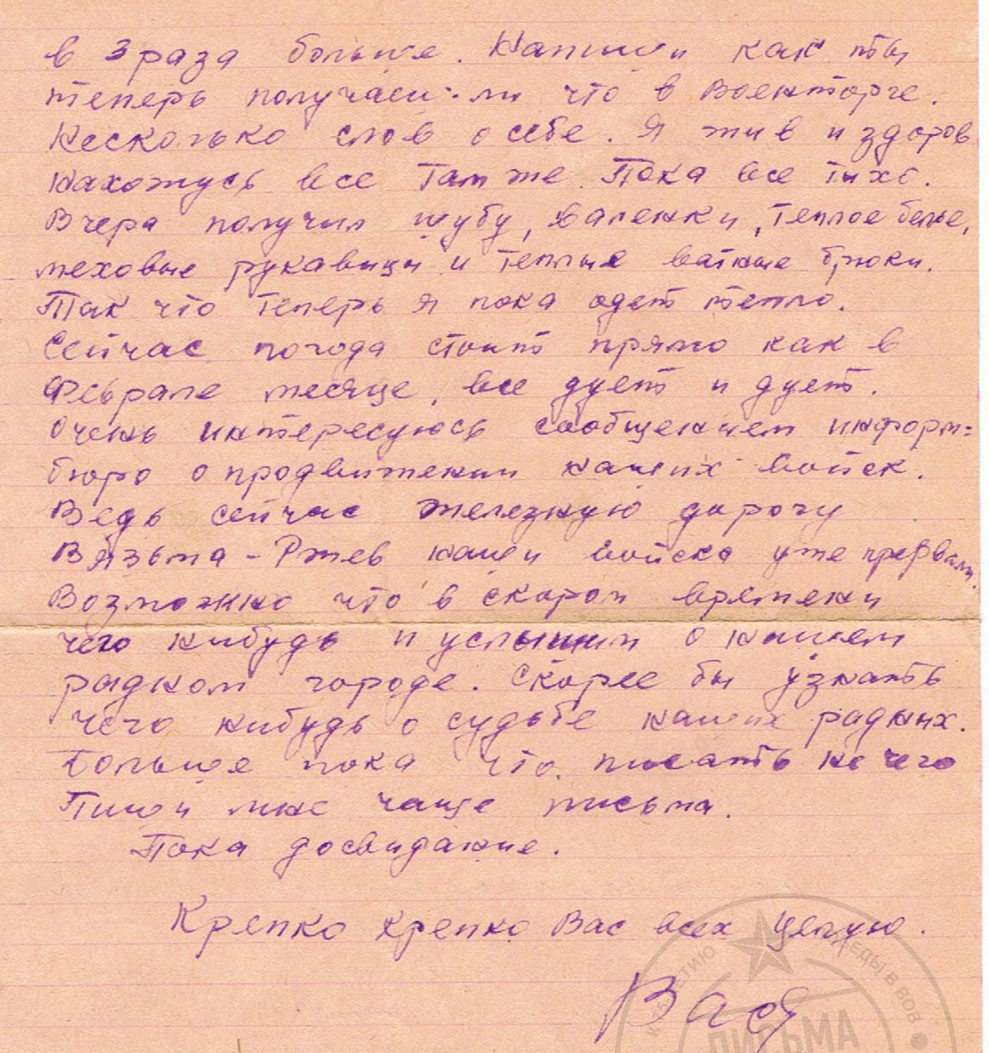 в 3 раза больше. Напиши как ты
теперь получаешь ли что в Военторге.
Несколько слов о себе. Я жив и здоров
нахожусь все там же. Пока все тихо.
Вчера получил шубу, валенки, теплое белье,
меховые рукавицы и теплые ватные брюки.
Так что теперь я пока одет тепло.
Сейчас погода стоит прямо как в
Феврале месяце, все дует и дует.
Очень интересуюсь сообщением информ=
бюро о продвижении наших войск.
Ведь сейчас железную дорогу
Вязьма - Ржев наши войска уже прервали.
Возможно что в скором времени
чего нибудь и услышим о нашем
родном городе. Скорее бы узнать
чего нибудь о судьбе наших родных.
Больше пока что писать не чего
Пиши мне чаще письма.
Пока досвидание.
Крепко крепко Вас всех целую.
ПОБЕДЫ В ВОВ
ПИСЬМА